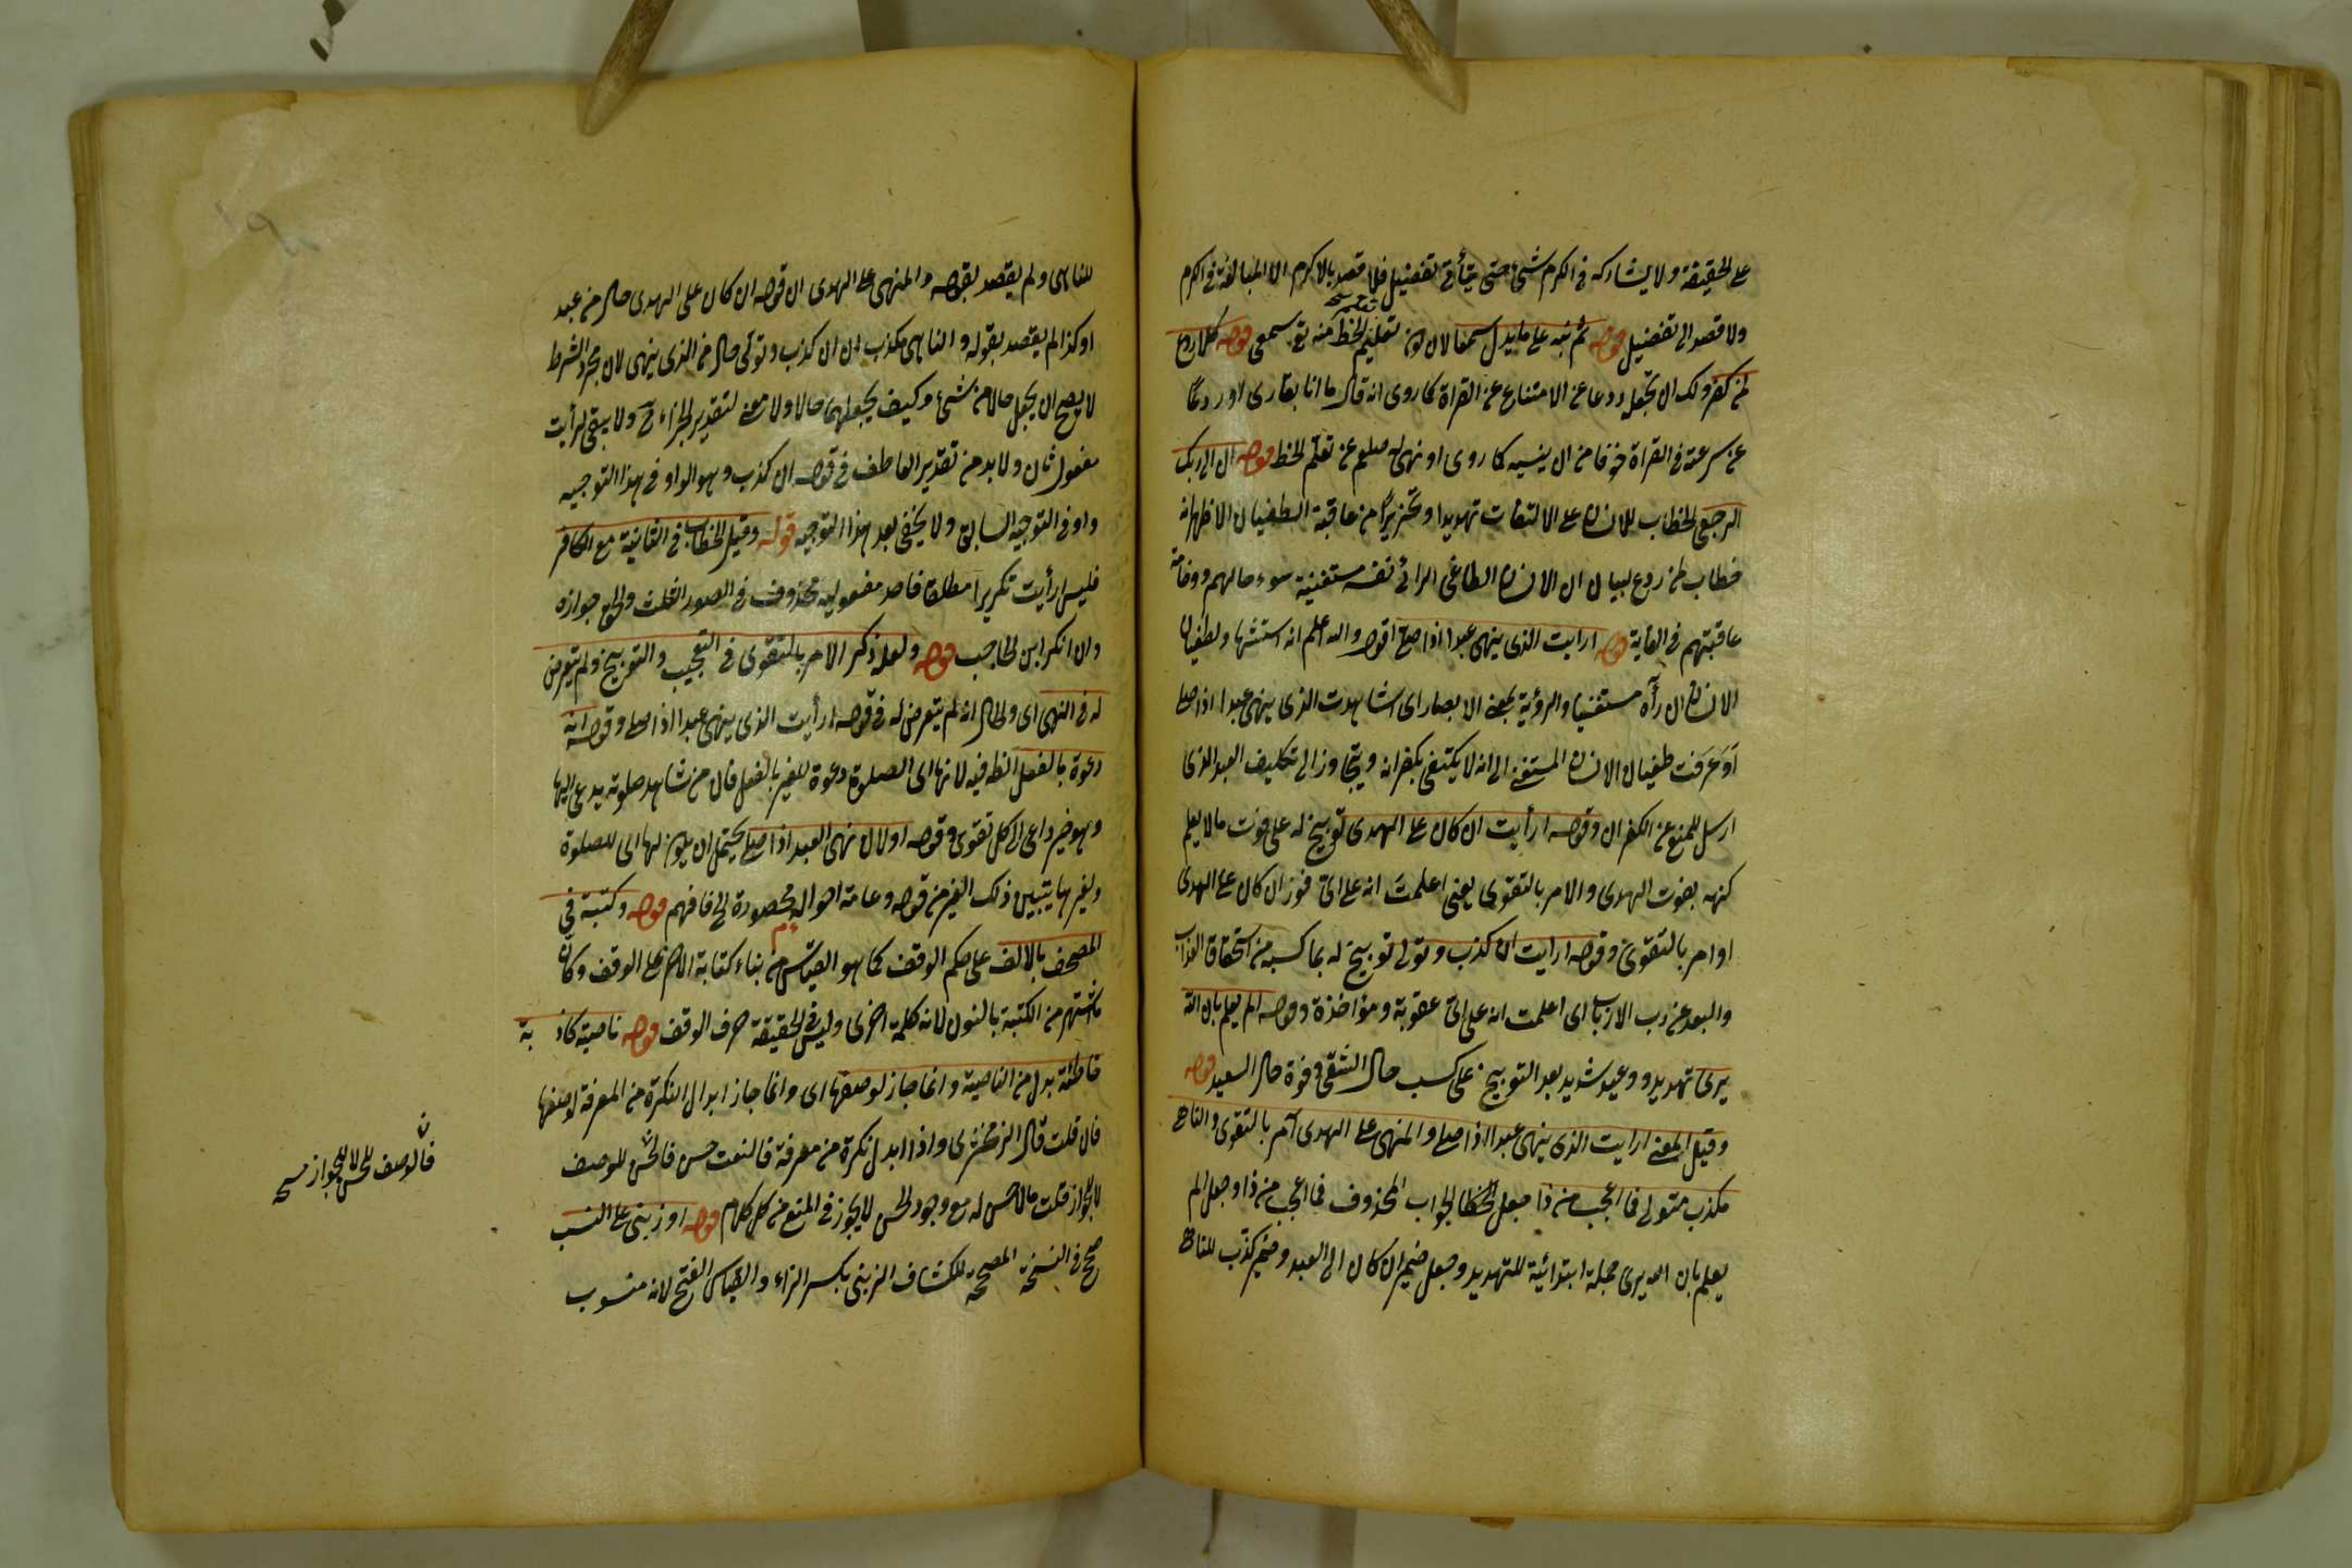 على الحقيقة ولا يشاركه في الكرم شئ حتى يتأتى تفضيل فلا قصد بالاكرم الا المبالغة في الكرم
ولا قصد الى تفضيل قوله ثم نبه على ما يدل سمعا لان تعليم الخط منه تع سمعى قوله كلا ردع
لمن كفر ولك ان تجعله ردعا عن الامتناع عن القراة كما روى انه قال ما انا بقارى او ردعًا
عن سرعته في القراة خوفا من ان ينسيه كما روى او نهى له صلعم عن تعلم الخط قوله ان الى ربك
الرجعى الخطاب للانسان على الالتفات تهديدا وتحذيرًا من عاقبة الطغيان الاظهر انه
خطاب لمن ردع لبيان ان الانسان الطاغى الرائى نفسه مستغنية سوء حالهم ووخامة
عاقبتهم في الغاية قوله ارايت الذى ينهى عبدا اذا صلى اقول والله اعلم انه استشهاد لطغيان
الانسان ان رآه مستغنيا والرؤية بمعنى الابصار اى اشاهدت الذى ينهى عبدا اذا صلى
أوَعَرَفت طغيان الانسان المستغنى الى انه لا يكتفى بكفرانه ويتجاوز الى تكليف العبد الذى
ارسل للمنع عن الكفران وقوله ارأيت ان كان على الهدى توبيخ له على فوت ما لا يعلم
كنهه بفوت الهدى والامر بالتقوى يعنى اعلمت انه على اى فوز ان كان على الهدى
او امر بالتقوى وقوله ارايت ان كذب وتولى توبيخ له بما كسبه من استحقاق العذاب
والبعد عن رب الارباب اى اعلمت انه على اى عقوبة ومؤاخذة وقوله الم يعلم بان الله
يرى تهديد ووعيد شديد بعد التوبيخ على كسب حال الشقى وفوة حال السعيد قوله
وقيل المعنى ارايت الذى ينهى عبدا اذا صلى والمنهى على الهدى آمر بالتقوى والناهى
مكذب متولى فما اعجب من ذا جعل الجواب المحذوف فما اعجب من ذا وجعل الم
يعلم بان الله يرى جملة ابتدائية للتهديد وجعل ضمير ان كان الى العبد وضمير كذّب للناهى
للناهى ولم يقصد بقوله والمنهى على الهدى ان قوله ان كان على الهدى حال من عبد
او كذا لم يقصد بقوله والناهى مكذب ان ان كذب وتولى حال من الذى ينهى لان مجرد الشرط
لا يصح ان يجعل حالا من شئ وكيف يجعلهما حالا ولا معنى لتقدير الجزاء ح ولا يبقى لرأيت
مفعول ثان ولا بد من تقدير العاطف في قوله ان كذب وهو الواو في هذا التوجيه
واو في التوجيه السابق ولا يخفى بعد هذا التوجيه قوله وقيل الخطاب في الثانية مع الكافر
فليس ارأيت تكريرا مطلقا فاحد مفعوليه محذوف في الصور الثلث والحق جوازه
وان انكر ابن الحاجب قوله ولعله ذكر الامر بالتقوى في التعجيب والتوبيخ ولم يتعرض
له في النهى اى والحال انه لم يتعرض له في قوله ارأيت الذى ينهى عبدا اذا صلى وقوله انه
دعوة بالفعل انظر فيه لانها اى الصلوة دعوة للغير بالفعل فان من شاهد صلوته يدعى اليها
وهو خير داعى الى كل تقوى وقوله اولان نهى العبد اذا صلى يحتمل ان يكون لها اى للصلوة
ولغيرها يتبين ذلك الغير من قوله وعامة احواله محصورة الى فافهم قوله وكتبته في
المصحف بالالف على حكم الوقف كما هو القياس من بناء كتابة الاسم على الوقف وكان
ما اشتهر من الكتبة بالنون لانه كلمة اخرى وليس في الحقيقة حرف الوقف قوله ناصية كاذبة
خاطئة بدل من الناصية وانما جاز لوصفها اى وانما جاز ابدال النكرة من المعرفة لوصفها
فان قلت قال الزمخشرى واذا ابدل نكرة من معرفة فالنعت حسن فالحسن للوصف
لا للجواز قلت مالا حسن له مع وجود الحسن لا يجوز في المنع من كل كلام قوله او زبنى على النسب
صح في النسخة المصححة للكشاف الزبنى بكسر الزاء والقياس الفتح لانه منسوب
فالوصف للحسن لا للجواز